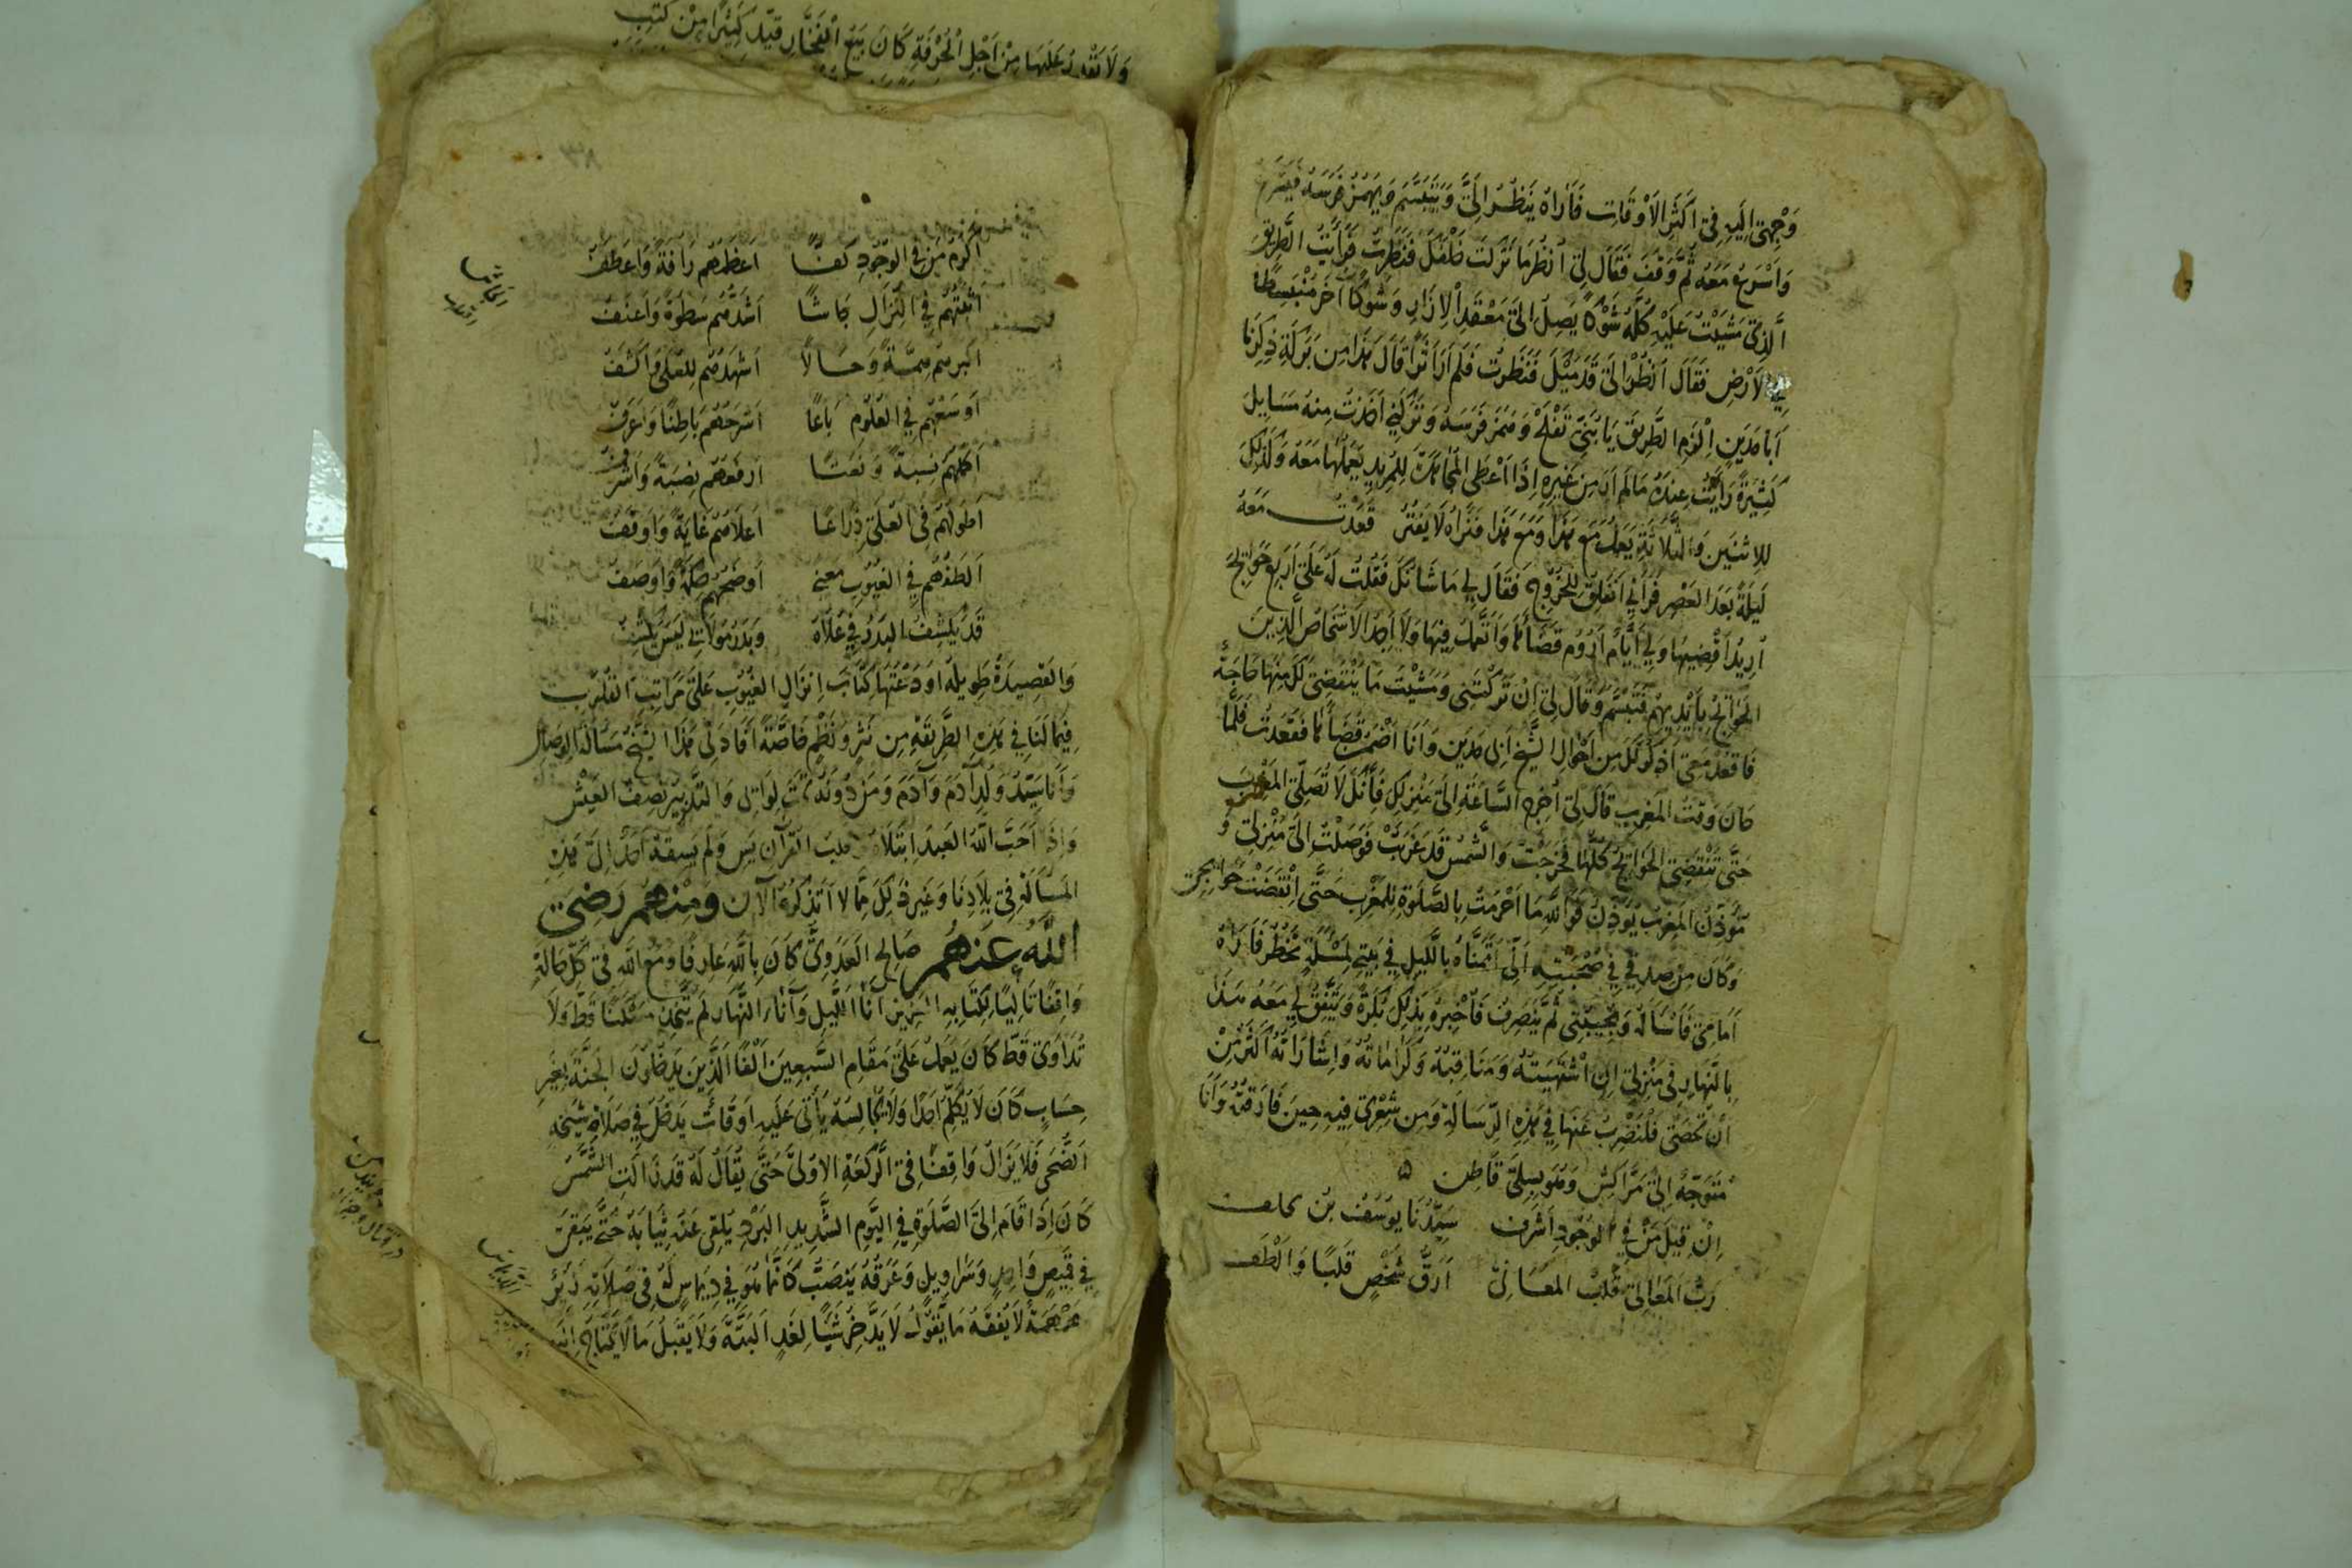 وَجْهَتِي إِلَيْهِ فِي أَكْثَرِ الأَوْقَاتِ فَأَرَاهُ يَنْظُرُ إِلَيَّ وَيَتَبَسَّمُ وَيَهْمُزُ فَرَسَهُ
وَأُسْرِعُ مَعَهُ ثُمَّ وَقَفَ فَقَالَ لِي أُنْظُرْ مَا تَرَكْتَ خَلْفَكَ فَنَظَرْتُ فَرَأَيْتُ الطَّرِيقَ
الَّذِي مَشَيْتُ عَلَيْهِ كُلَّهُ شَوْكًا يَصِلُ إِلَى مَعْقَدِ الإِزَارِ وَشَوْكًا آخَرَ مُنْبَسِطًا
فِي الأَرْضِ فَقَالَ أُنْظُرْ إِلَى قَدَمَيْكَ فَنَظَرْتُ فَلَمْ أَرَ أَثَرًا قَالَ هَذَا مِنْ بَرَكَةِ ذِكْرِنَا
أَبَا مَدْيَنَ إِلْزَمِ الطَّرِيقَ يَا بُنَيَّ تُفْلِحْ وَهَمَزَ فَرَسَهُ وَتَرَكَنِي أَخَذْتُ مِنْهُ مَسَايِلَ
كَثِيرَةً رَأَيْتُ عِنْدَهُ مَا لَمْ أَرَ مِنْ غَيْرِهِ إِذَا أَعْطَى الْمُجَاهَدَةَ لِلْمُرِيدِ يَعْمَلُهَا مَعَهُ وَكَذَلِكَ
لِلإِثْنَيْنِ وَالثَّلاَثَةِ يَعْمَلُ مَعَ هَذَا وَمَعَ هَذَا فَتَرَاهُ لاَ يَفْتُرُ قَعَدْتُ مَعَهُ
لَيْلَةً بَعْدَ الْعَصْرِ فَرَآنِي أَتَقَلَّقُ لِلْخُرُوجِ فَقَالَ لِي مَا شَأْنُكَ فَقُلْتُ لَهُ عَلَيَّ أَرْبَعُ حَوَائِجَ
أُرِيدُ أَقْضِيهَا وَلِي أَيَّامٌ أَرُومُ قَضَاءَهَا وَأَتَعَمَّلُ فِيهَا وَلاَ أَجِدُ الأَشْخَاصَ الَّذِينَ
الْحَوَائِجُ بِأَيْدِيهِمْ فَتَبَسَّمَ وَقَالَ لِي إِنْ تَرَكْتَنِي وَمَشَيْتَ مَا يَنْقَضِي لَكَ مِنْهَا حَاجَةٌ
فَاقْعُدْ مَعِي أَذْكُرْ لَكَ مِنْ أَحْوَالِ الشَّيْخِ أَبِي مَدْيَنَ وَأَنَا أَضْمَنُ قَضَاءَهَا فَقَعَدْتُ فَلَمَّا
كَانَ وَقْتُ الْمَغْرِبِ قَالَ لِي أُخْرُجِ السَّاعَةَ إِلَى مَنْزِلِكَ فَإِنَّكَ لاَ تُصَلِّي الْمَغْرِبَ
حَتَّى تَنْقَضِيَ الْحَوَائِجُ كُلُّهَا فَخَرَجْتُ وَالشَّمْسُ قَدْ غَرَبَتْ فَوَصَلْتُ إِلَى مَنْزِلِي وَ
مُؤَذِّنُ الْمَغْرِبِ يُؤَذِّنُ فَوَاللهِ مَا أَحْرَمْتُ بِالصَّلَوةِ لِلْمَغْرِبِ حَتَّى انْقَضَتْ حَوَائِجِي
وَكَانَ مِنْ صِدْقِي فِي صُحْبَتِهِ أَنِّي أَتَمَنَّاهُ بِاللَّيْلِ فِي بَيْتِي لِمَسْئَلَةٍ تَخْطُرُ فَأَرَاهُ
أَمَامِي فَأَسْأَلُهُ وَيُجِيبُنِي ثُمَّ يَنْصَرِفُ فَأُخْبِرُهُ بِذَلِكَ بُكْرَةً وَيَتَّفِقُ لِي مَعَهُ هَذَا
بِالنَّهَارِ فِي مَنْزِلِي إِنِ اشْتَهَيْتُهُ وَمَنَاقِبُهُ وَكَرَامَاتُهُ وَإِشَارَاتُهُ أَكْثَرُ مِنْ
أَنْ تُحْصَى فَلْنَضْرِبْ عَنْهَا فِي هَذِهِ الرِّسَالَةِ وَمِنْ شِعْرِي فِيهِ حِينَ فَارَقْتُهُ وَأَنَا
مُتَوَجِّهٌ إِلَى مَرَّاكِشَ وَهُوَ بِسِلَى قَاطِنٌ
إِنْ قِيلَ مَنْ فِي الْوُجُودِ أَشْرَفُ سَيِّدُنَا يُوسُفُ بْنُ يخلف
رَبُّ الْمَعَالِي قَلْبُ الْمَعَانِي أَرَقُّ شَخْصٍ قَلْبًا وَأَلْطَفُ
وَلاَ تَقْدِرُ عَلَيْهَا مِنْ أَجْلِ الْحُرْفَةِ كَانَ يَبِيعُ الْفَخَّارَ قَيَّدَ كَثِيرًا مِنْ كُتُبِ
أَكْرَمُ مَنْ فِي الْوُجُودِ كَفًّا أَعْظَمُهُمْ رَأْفَةً وَأَعْطَفُ
أَثْبَتُهُمْ فِي النِّزَالِ جَاشًا أَشَدُّهُمْ سَطْوَةً وَأَعْنَفُ
أَكْبَرُهُمْ هِمَّةً وَحَالاً أَشْهَدُهُمْ لِلْعُلَى وَأَكْشَفُ
أَوْسَعُهُمْ فِي الْعُلُومِ بَاعًا أَشْرَحُهُمْ بَاطِنًا وَأَعْرَفُ
أَكْمَلُهُمْ نِسْبَةً وَنَعْتًا أَرْفَعُهُمْ نِصْبَةً وَأَشْرَفُ
أَطْوَلُهُمْ فِي الْعُلَى ذِرَاعًا أَعْلاَهُمْ غَايَةً وَأَوْقَفُ
أَلْطَفُهُمْ فِي الْغُيُوبِ مَعْنًى أَوْضَحُهُمْ حِكْمَةً وَأَوْصَفُ
قَدْ يُكْسَفُ الْبَدْرُ فِي عُلاَهُ وَبَدْرُ مَوْلاَيَ لَيْسَ يُكْسَفُ
وَالْقَصِيدَةُ طَوِيلَةٌ أَوْدَعْتُهَا كِتَابَ إِنْزَالِ الْغُيُوبِ عَلَى مَرَاتِبِ الْقُلُوبِ
فِيمَا لَنَا فِي هَذِهِ الطَّرِيقَةِ مِنْ نَثْرٍ وَنَظْمٍ خَاصَّةً أَفَادَنِي هَذَا الشَّيْخُ مَسْأَلَةَ الْوِصَالِ
وَأَنَا سَيِّدُ وَلَدِ آدَمَ وَآدَمُ وَمَنْ دُونَهُ تَحْتَ لِوَائِي وَالتَّدْبِيرُ نِصْفُ الْعَيْشِ
وَإِذَا أَحَبَّ اللهُ الْعَبْدَ ابْتَلاَهُ وَقَلْبُ الْقُرْآنِ يس وَلَمْ يَسْبِقْهُ أَحَدٌ إِلَى هَذِهِ
الْمَسْأَلَةِ فِي بِلاَدِنَا وَغَيْرَ ذَلِكَ مِمَّا لاَ أَتَذَكَّرُهُ الآنَ وَمِنْهُمْ رَضِيَ
اللهُ عَنْهُمْ صَالِحٌ الْعَدَوِيُّ كَانَ بِاللهِ عَارِفًا وَمَعَ اللهِ فِي كُلِّ حَالَةٍ
وَاقِفًا تَالِيًا لِكِتَابِهِ الْعَزِيزِ آنَاءَ اللَّيْلِ وَآنَاءَ النَّهَارِ لَمْ يَتَّخِذْ مَسْكَنًا قَطُّ وَلاَ
تَدَاوَى قَطُّ كَانَ يَعْمَلُ عَلَى مَقَامِ السَّبْعِينَ أَلْفًا الَّذِينَ يَدْخُلُونَ الْجَنَّةَ بِغَيْرِ
حِسَابٍ كَانَ لاَ يُكَلِّمُ أَحَدًا وَلاَ يُجَالِسُهُ يَأْتِي عَلَيْهِ أَوْقَاتٌ يَدْخُلُ فِي صَلاَةِ
الضُّحَى فَلاَ يَزَالُ وَاقِفًا فِي الرَّكْعَةِ الأُولَى حَتَّى يُقَالَ لَهُ قَدْ زَالَتِ الشَّمْسُ
كَانَ إِذَا قَامَ إِلَى الصَّلَوةِ فِي الْيَوْمِ الشَّدِيدِ الْبَرْدِ يُلْقِي عَنْهُ ثِيَابَهُ حَتَّى يَبْقَى
فِي قَمِيصٍ وَاحِدٍ وَسَرَاوِيلَ وَعَرَقُهُ يَنْصَبُّ كَأَنَّمَا هُوَ فِي دِيمَاسٍ لَهُ فِي صَلاَتِهِ زَئِيرٌ
هَمْهَمَةٌ لاَ يُفْقَهُ مَا يَقُولُ لاَ يَدَّخِرُ شَيْئًا لِغَدٍ أَلْبَتَّةَ وَلاَ يَقْبَلُ مَا لاَ يَحْتَاجُ إِلَيْهِ